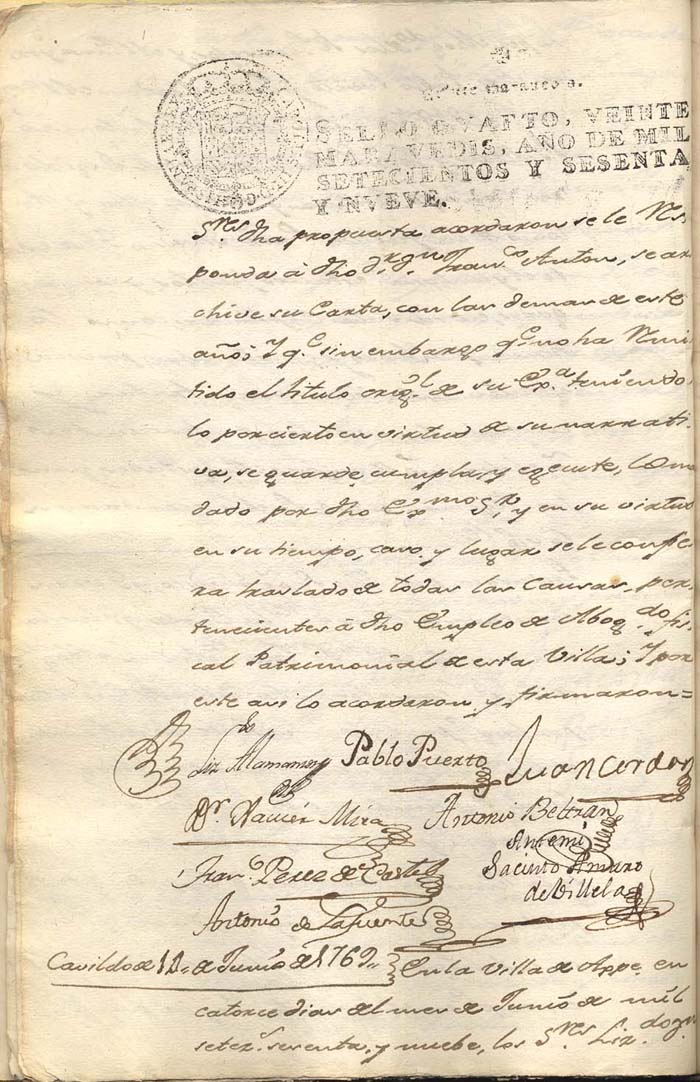 SELLO QVARTO, VEINTE
MARAVEDIS, AÑO DE MIL
SETECIENTOS Y SESENTA
Y NVEVE.
S.res dha propuesta acordaron se le Res
ponda â dho d.r d.n Fran.co Anton, se ar
chive su Carta, con las demas de este
año; Y q.e sin embargo q.e no ha Remi
tido el titulo orig.l de su Ex.a teniendo
lo por cierto en virtud de su narrati
va, se guarde, cumpla, y egecute, lo man
dado por dho Ex.mo S.r, y en su virtud
en su tiempo, caso, y lugar se le confie
ra traslado de todas las Causas, per
tenecientes â dho Empleo de Abog.do fis
cal Patrimonial de esta Villa; Y por
este asi lo acordaron, y firmaron=
Pablo Puerto
Juan Cerdan
D.r Xavier Mira
Antonio Beltran
Antemi
Fran.co Perez de Castel
Jacinto Amaro
de Villela
Antonio de Lafuente
Cavildo de de Junio de 1769,, En la Villa de Aspe, en
catorce dias del mes de Junio de mil
setez.s sesenta, y nuebe, los S.res Liz.do